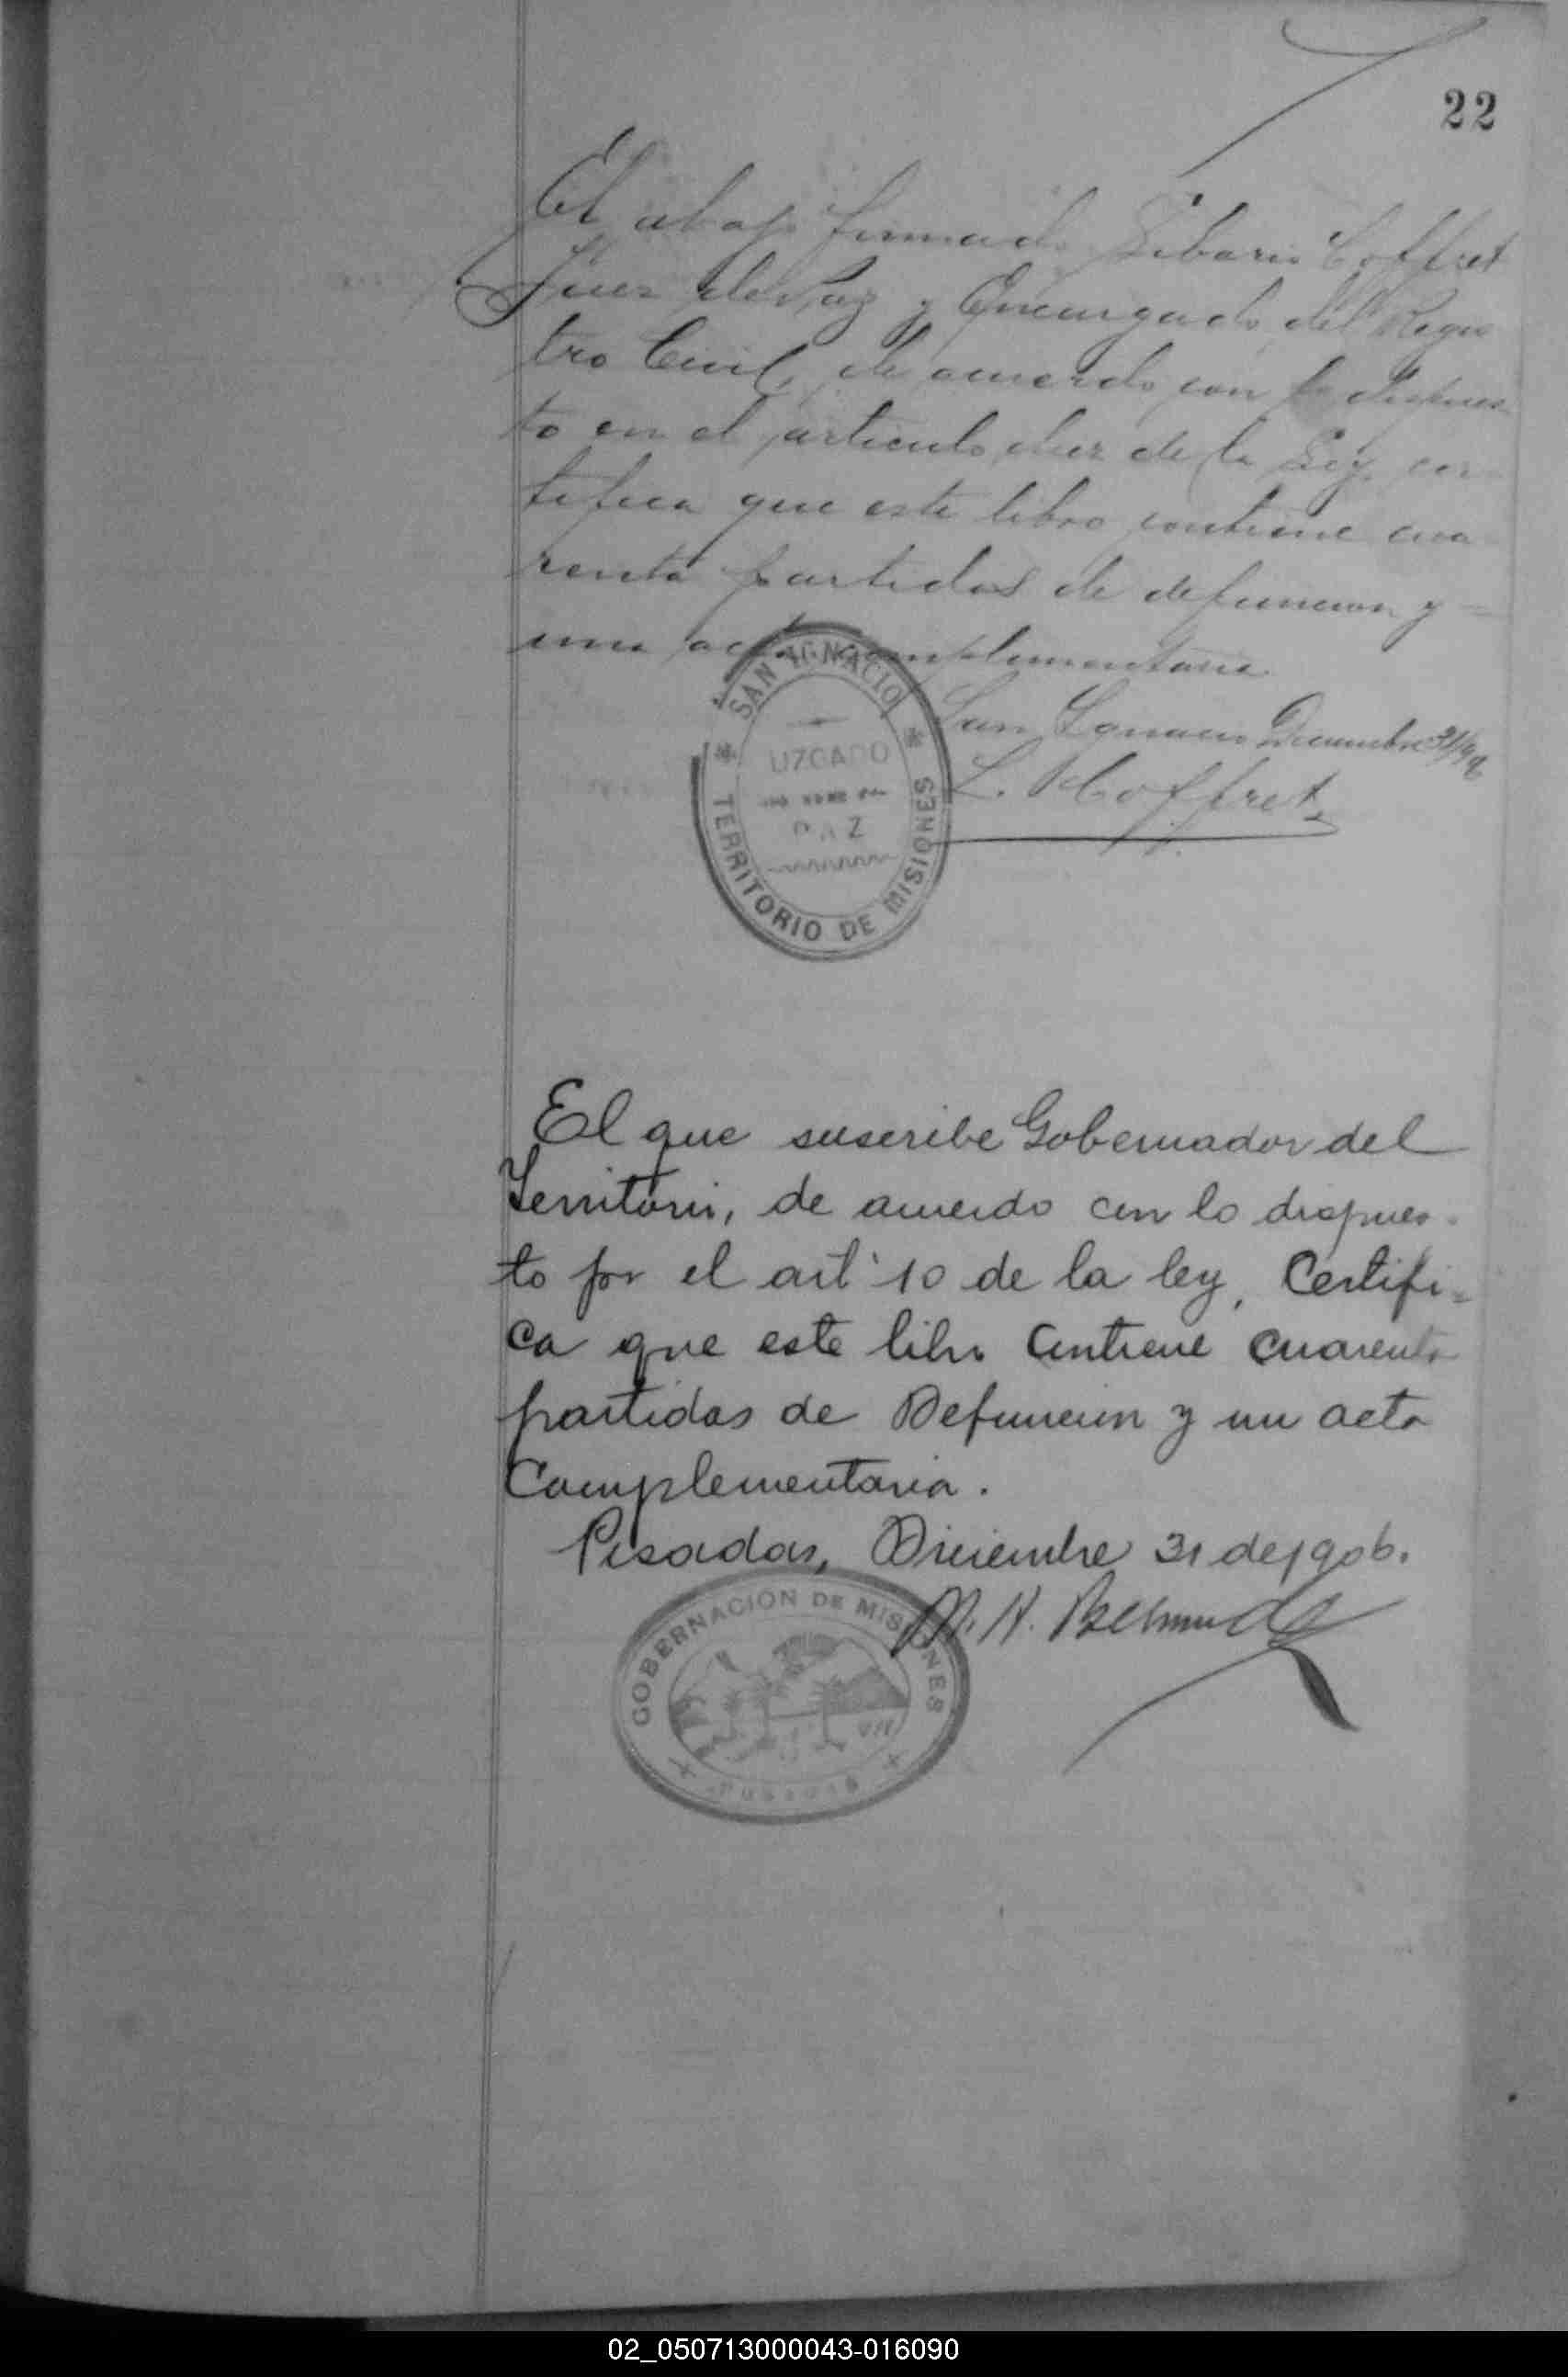 22
El abajo firmado Libario Coffret
Juez de Paz y Encargado del Regis
tro Civil, de acuerdo con lo dispues
to en el articulo diez de la Ley, cer
tifica que este libro contiene cua
renta partidas de defuncion y
una acta complementaria
San Ignacio Diciembre 31/906
L. Coffret
SAN IGNACIO
UZGADO
PAZ
TERRITORIO DE MISIONES
El que suscribe Gobernador del
Territorio, de acuerdo con lo dispues-
to por el art 10 de la ley, Certifi=
ca que este libro contiene cuarenta
partidas de Defuncion y un acta
Complementaria.
Posadas, Diciembre 31 de 1906.
GOBERNACION DE MISIONES
02_050713000043-016090